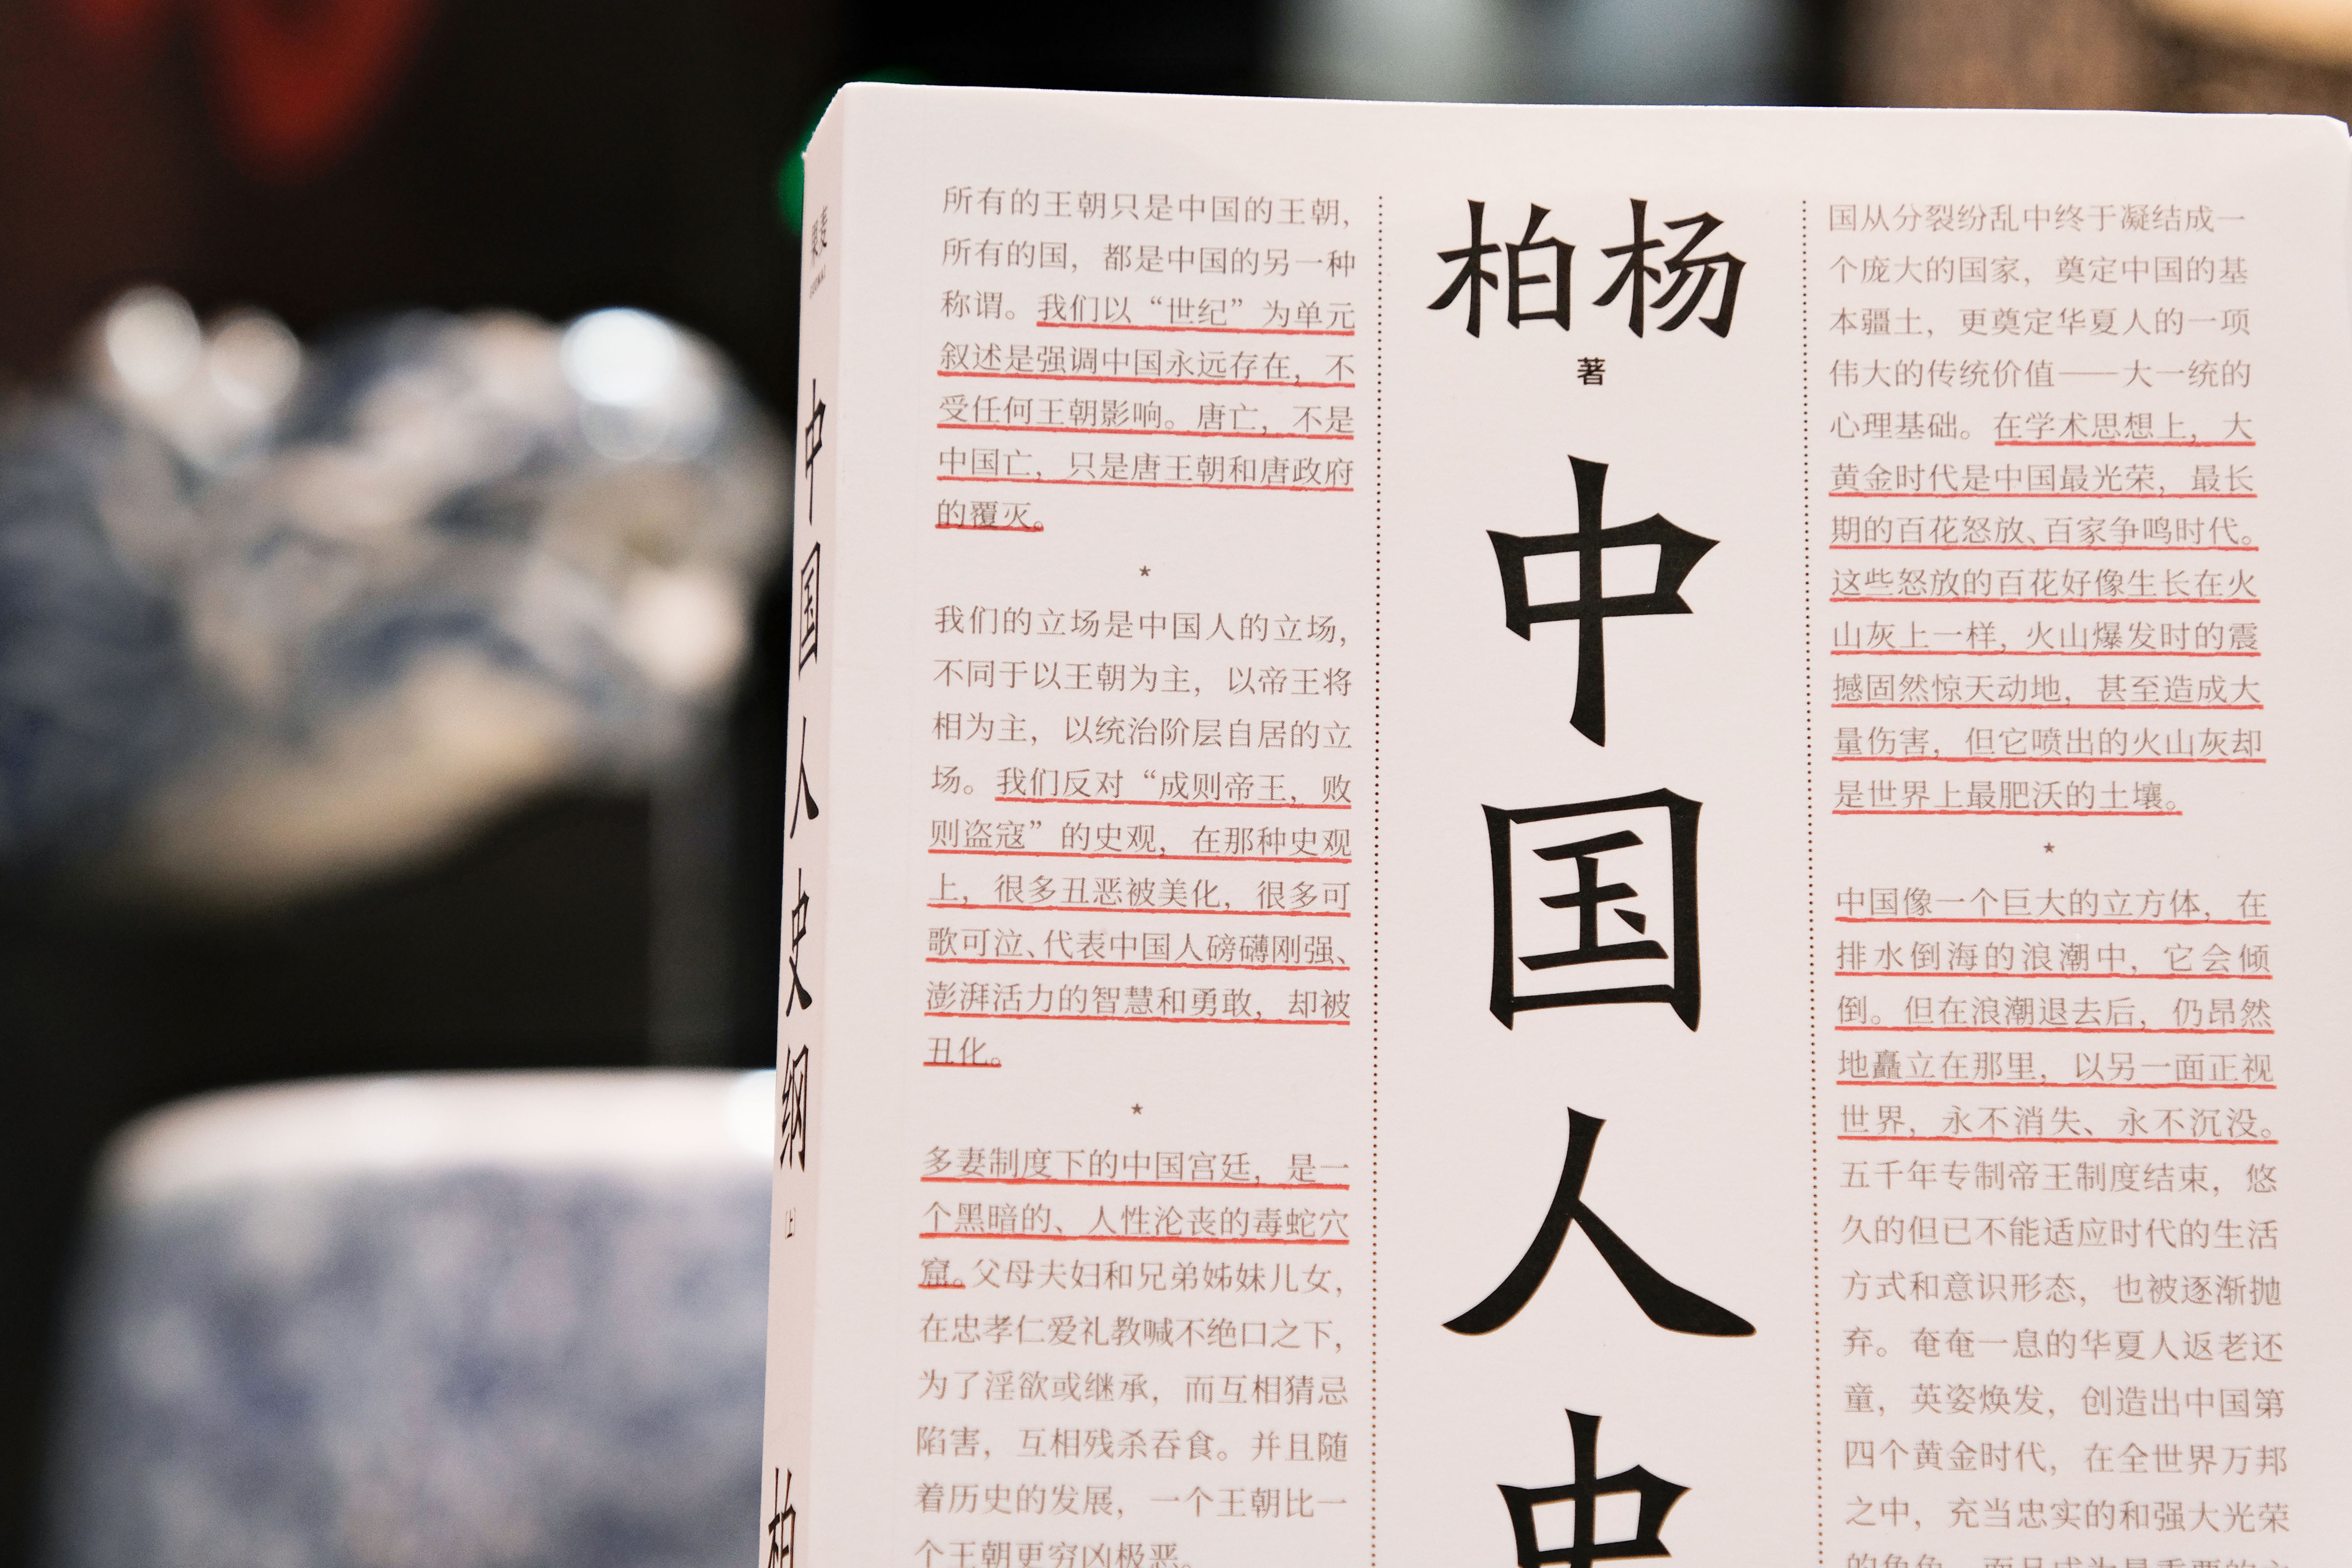 中国人史纲
(上)
柏
所有的王朝只是中国的王朝，
所有的国，都是中国的另一种
称谓。我们以“世纪”为单元
叙述是强调中国永远存在，不
受任何王朝影响。唐亡，不是
中国亡，只是唐王朝和唐政府
的覆灭。
★
我们的立场是中国人的立场，
不同于以王朝为主，以帝王将
相为主，以统治阶层自居的立
场。我们反对“成则帝王，败
则盗寇”的史观，在那种史观
上，很多丑恶被美化，很多可
歌可泣、代表中国人磅礴刚强、
澎湃活力的智慧和勇敢，却被
丑化。
★
多妻制度下的中国宫廷，是一
个黑暗的、人性沦丧的毒蛇穴
窟。父母夫妇和兄弟姊妹儿女，
在忠孝仁爱礼教喊不绝口之下，
为了淫欲或继承，而互相猜忌
陷害，互相残杀吞食。并且随
着历史的发展，一个王朝比一
个王朝更穷凶极恶。
柏杨
著
中
国
人
史
国从分裂纷乱中终于凝结成一
个庞大的国家，奠定中国的基
本疆土，更奠定华夏人的一项
伟大的传统价值——大一统的
心理基础。在学术思想上，大
黄金时代是中国最光荣，最长
期的百花怒放、百家争鸣时代。
这些怒放的百花好像生长在火
山灰上一样，火山爆发时的震
撼固然惊天动地，甚至造成大
量伤害，但它喷出的火山灰却
是世界上最肥沃的土壤。
★
中国像一个巨大的立方体，在
排水倒海的浪潮中，它会倾
倒。但在浪潮退去后，仍昂然
地矗立在那里，以另一面正视
世界，永不消失、永不沉没。
五千年专制帝王制度结束，悠
久的但已不能适应时代的生活
方式和意识形态，也被逐渐抛
弃。奄奄一息的华夏人返老还
童，英姿焕发，创造出中国第
四个黄金时代，在全世界万邦
之中，充当忠实的和强大光荣
的角色，而且成为最重要的